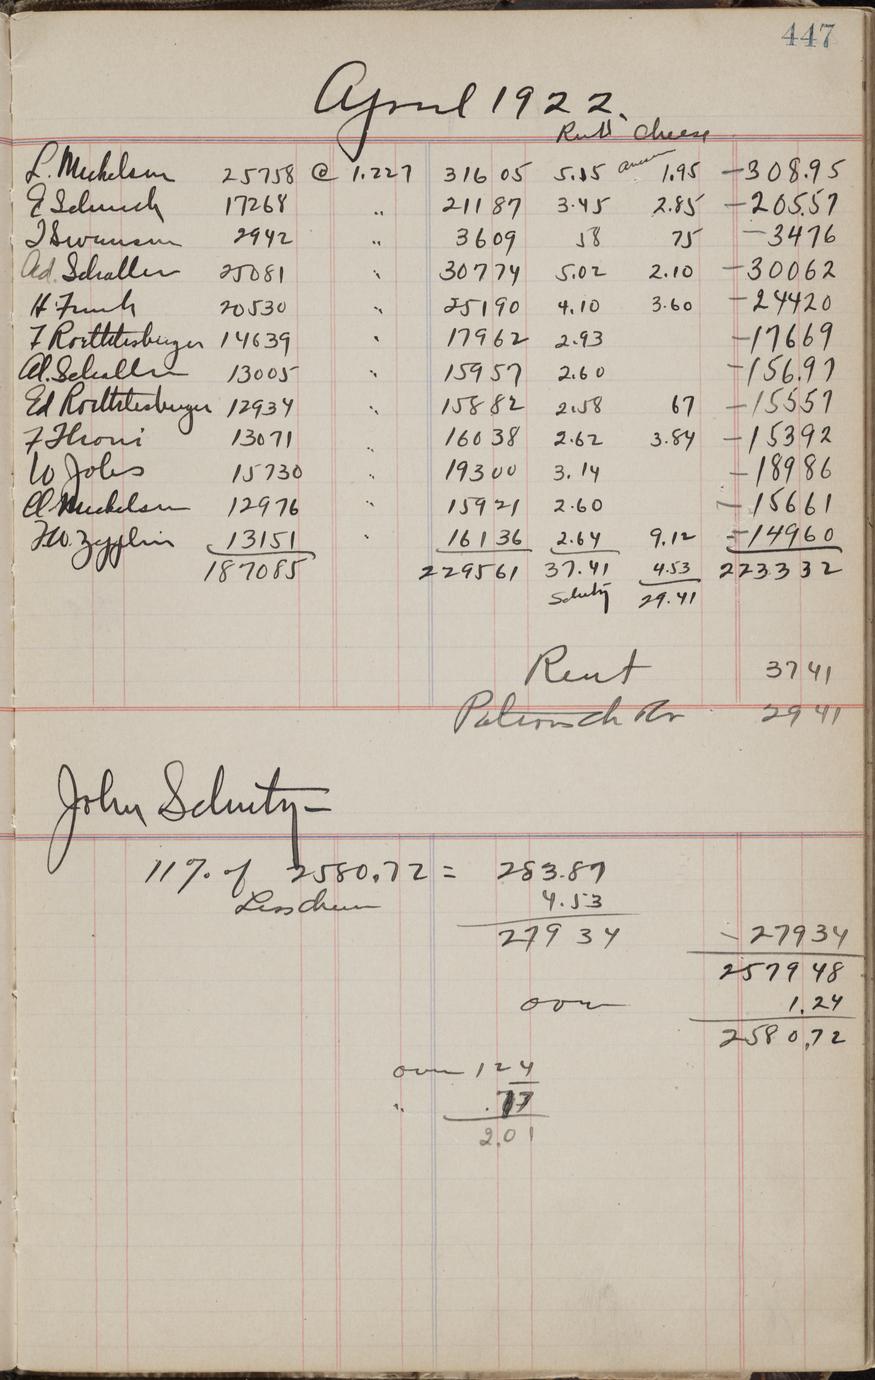 447
April 1922.
Rent Cheese
L. Mickelson 25758 @ 1.227 316 05 5.15 1.95 - 308.95
E Schuch 17268 " 211 87 3.45 2.85 - 205.57
2942 " 3609 58 75 - 3476
Ad. Schaller 25081 " 30774 5.02 2.10 - 30062
H. Funk 20530 " 25190 4.10 3.60 - 24420
F Roethlesberger 14639 " 17962 2.93 - 17669
Al. Schaller 13005 " 15957 2.60 - 156.97
Ed Roethlesberger 12934 " 15882 2.58 67 - 15557
F Thoni 13071 " 16038 2.62 3.84 - 15392
W Jobes 15730 " 19300 3.14 - 18986
Al. Mickelson 12976 " 15921 2.60 - 15661
F.W. Zepplin 13151 " 16136 2.64 9.12 - 14960
187085 229561 37.41 4.53 223332
Schutz 29.41
Rent 3741
Patrons ch 2941
John Schutz -
11% of 2580.72 = 283.87
Less cheese 4.53
279 34 - 27934
257948
over 1.24
2580.72
over 124
" .77
2.01